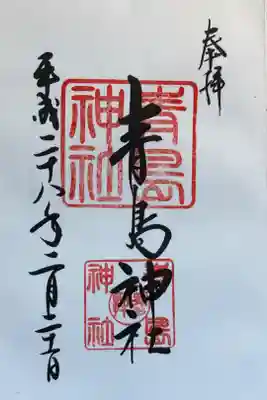 奉拝
青島神社
平成二十八年二月
青島
神社
青島
神社